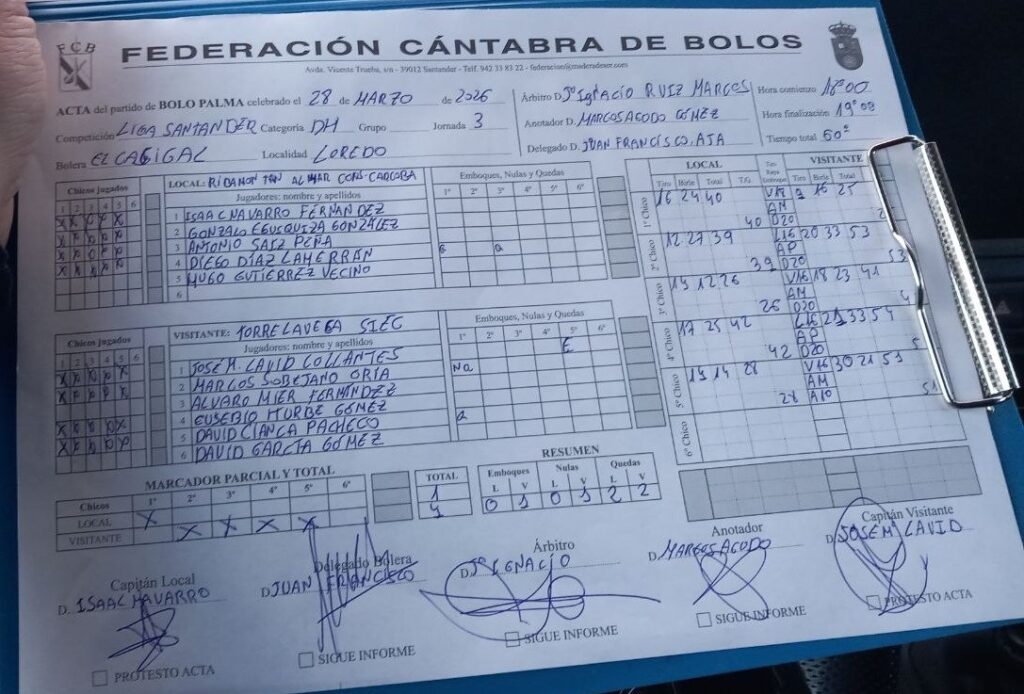 FCB
FEDERACIÓN CÁNTABRA DE BOLOS
Avda. Vicente Trueba, s/n - 39012 Santander - Telf. 942 33 83 22 - federacion@maderadeser.com
ACTA del partido de BOLO PALMA celebrado el 28 de MARZO de 2026
Competición LIGA SANTANDER Categoría DH Grupo Jornada 3
Bolera EL CAGIGAL Localidad LOREDO
Árbitro D. Jº Ignacio RUIZ MARCOS
Anotador D. MARCOS AGODO GÓMEZ
Delegado D. JUAN FRANCISCO AJA
Hora comienzo 18:00
Hora finalización 19:00
Tiempo total 60'
Chicos jugados
1 2 3 4 5 6
LOCAL: RIBAMONTÁN AL MAR CONS CARCOBA
Jugadores: nombre y apellidos
1 ISAAC NAVARRO FERNÁNDEZ
2 GONZALO EGUSQUIZA GONZÁLEZ
3 ANTONIO SAIZ PEÑA
4 DIEGO DÍAZ LAHERRÁN
5 HUGO GUTIÉRREZ VECINO
6
Emboques, Nulas y Quedas
1º 2º 3º 4º 5º 6º
Chicos jugados
1 2 3 4 5 6
VISITANTE: TORRELAVEGA SIEC
Jugadores: nombre y apellidos
1 JOSÉ M. LAVID COLLANTES
2 MARCOS SOBEJANO ORIA
3 ALVARO MIER FERNÁNDEZ
4 EUSEBIO ITURBE GÓMEZ
5 DAVID CIANCA PACHECO
6 DAVID GARCÍA GÓMEZ
Emboques, Nulas y Quedas
1º 2º 3º 4º 5º 6º
E
LOCAL VISITANTE
Tiro Birle Total T.G. Tiro Birle Total
1º Chico 16 24 40 V17 9 16 25
AM
40 D20
2º Chico 12 27 39 L16 20 33 53
AP
39 D20 53
3º Chico 26 V16 18 23 41
AM
26 D20
4º Chico 17 25 42 33 54
AP
42 D20
5º Chico 14 28 V16 30 21 51
AM
28 A10 51
6º Chico
MARCADOR PARCIAL Y TOTAL
Chicos 1º 2º 3º 4º 5º 6º TOTAL
LOCAL X 1
VISITANTE X X X X 4
RESUMEN
Emboques Nulas Quedas
L V L V L V
0 1 0 1 2 2
Capitán Local
D. ISAAC NAVARRO
PROTESTO ACTA
Delegado Bolera
D. JUAN FRANCISCO
SIGUE INFORME
Árbitro
D. Jº IGNACIO
SIGUE INFORME
Anotador
D. MARCOS AGODO
SIGUE INFORME
Capitán Visitante
D. JOSE Mª LAVID
PROTESTO ACTA